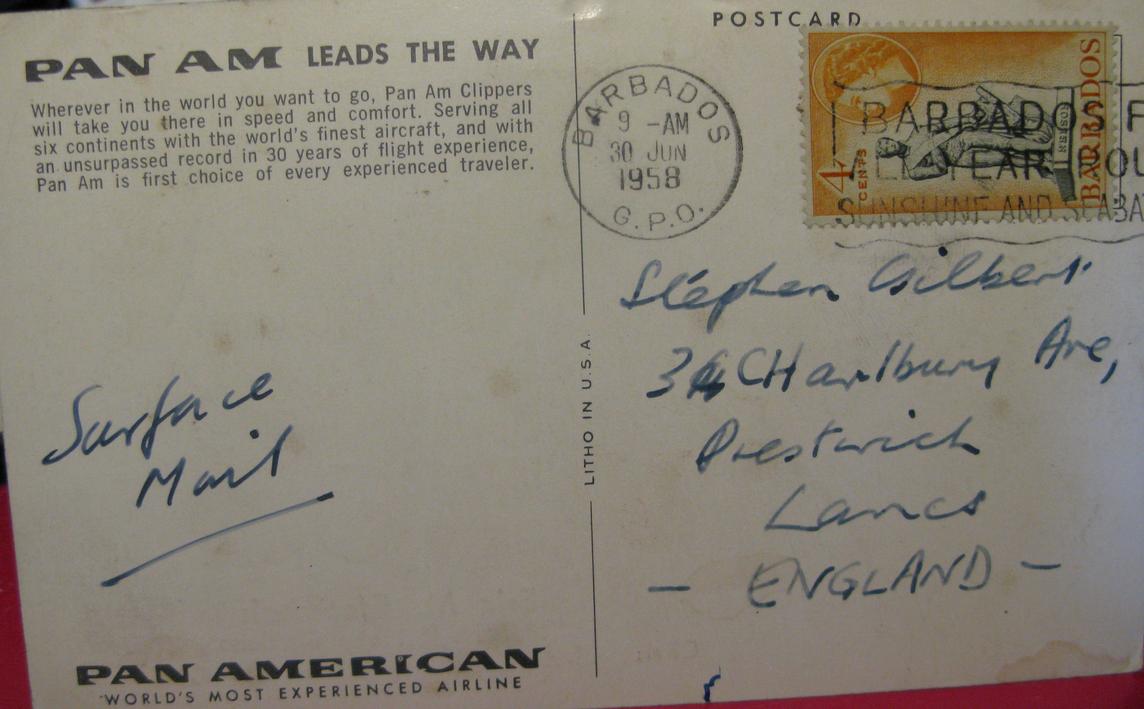 PAN AM LEADS THE WAY
Wherever in the world you want to go, Pan Am Clippers
will take you there in speed and comfort. Serving all
six continents with the world's finest aircraft, and with
an unsurpassed record in 30 years of flight experience,
Pan Am is first choice of every experienced traveler.
Surface
Mail
PAN AMERICAN
WORLD'S MOST EXPERIENCED AIRLINE
LITHO IN U.S.A.
POSTCARD
BARBADOS
9 -AM
30 JUN
1958
G.P.O.
4 CENTS
BARBADOS
BARBADOS F
ALL YEAR
SUNSHINE AND SEABA
Stephen Gilbert
34 CHarlbury Ave,
Prestwich
Lancs
— ENGLAND —